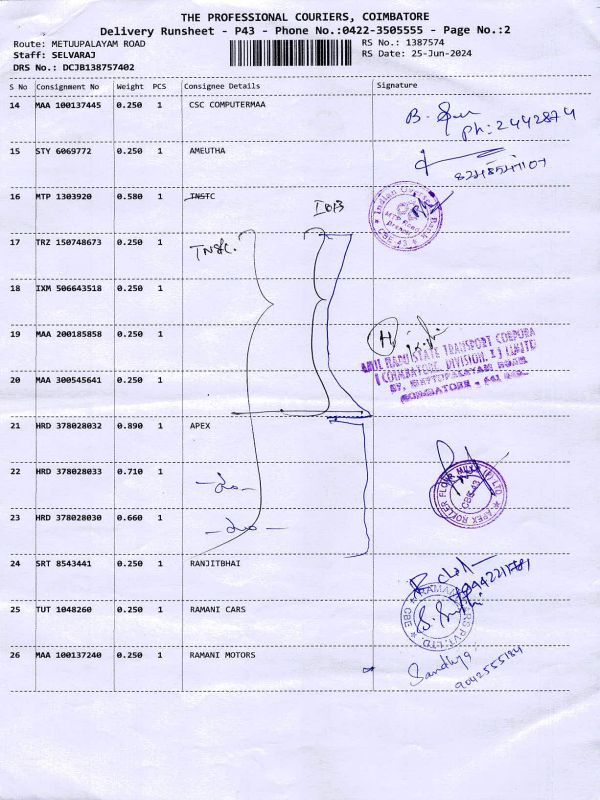 THE PROFESSIONAL COURIERS, COIMBATORE
Delivery Runsheet - P43 - Phone No.:0422-3505555 - Page No.:2
Route: METUUPALAYAM ROAD
RS No.: 1387574
Staff: SELVARAJ
RS Date: 25-Jun-2024
DRS No.: DCJB138757402
S No Consignment No Weight PCS Consignee Details Signature
14 MAA 100137445 0.250 1 CSC COMPUTERMAA
Ph: 2442874
15 STY 6069772 0.250 1 AMEUTHA
16 MTP 1303920 0.580 1 TNSTC
IOB
17 TRZ 150748673 0.250 1
TNSTC.
18 IXM 506643518 0.250 1
19 MAA 200185858 0.250 1
TAMIL NADU STATE TRANSPORT CORPORA
(COIMBATORE, DIVISION. I) LIMITED
20 MAA 300545641 0.250 1
21 HRD 378028032 0.890 1 APEX
22 HRD 378028033 0.710 1 -do-
APEX ROLLER FLOUR MILLS (P) LTD
CBE-43
23 HRD 378028030 0.660 1 -do-
24 SRT 8543441 0.250 1 RANJITBHAI
25 TUT 1048260 0.250 1 RAMANI CARS
26 MAA 100137240 0.250 1 RAMANI MOTORS
Sandhya
9042555184